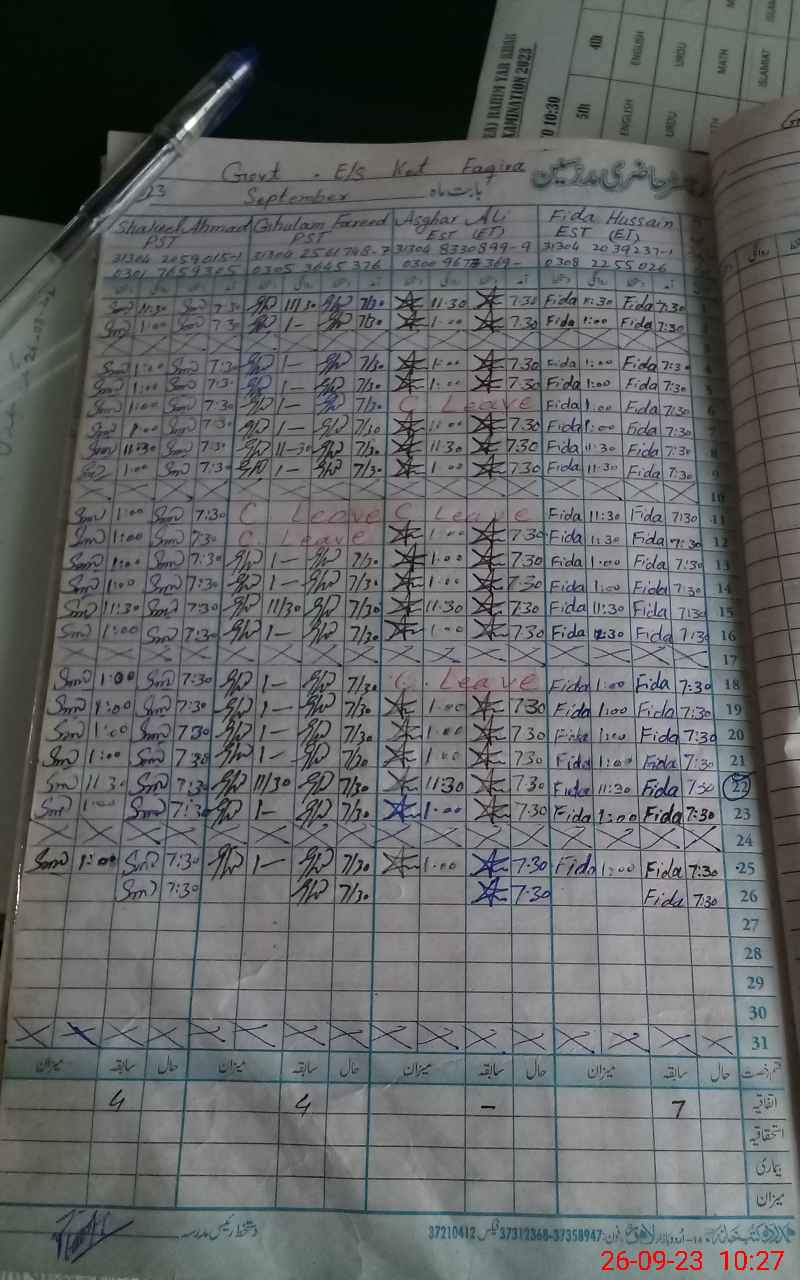 (EA) RAHIM YAR KHAN
EXAMINATION 2023
TO 10:30
5th 4th
ENGLISH ENGLISH
URDU URDU
MATH MATH
ISLAMIAT ISLAMIAT
23 Govt . E/S Kot Faqira حاضری مدرسین
September بابت ماہ
Shakeel Ahmad Ghulam Fareed Asghar Ali Fida Hussain
PST PST EST (ET) EST (ET)
31304 2059015-1 31304 2561748-7 31304 8330899-9 31304 2039237-1
0301 7659305 0305 3645376 0308 2255026
11:30 7:30 11/30 7/30 11:30 7:30 Fida 11:30 Fida 7:30
1:00 7:30 1- 7/30 1:00 7:30 Fida 1:00 Fida 7:30
1:00 7:30 1- 7/30 1:00 7:30 Fida 1:00 Fida 7:30 4
1:00 7:30 1- 7/30 1:00 7:30 Fida 1:00 Fida 7:30 5
1:00 7:30 1- 7/30 C. Leave Fida 1:00 Fida 7:30 6
1:00 7:30 1- 7/30 1:00 7:30 Fida 1:00 Fida 7:30
11:30 7:30 11-30 7/30 11:30 7:30 Fida 11:30 Fida 7:30 8
1:00 7:30 1- 7/30 1:00 7:30 Fida 11:30 Fida 7:30 9
10
1:00 7:30 C. Leave C. Leave Fida 11:30 Fida 7:30 11
1:00 7:30 C. Leave 1:00 7:30 Fida 1:30 Fida 7:30 12
1:00 7:30 1- 7/30 1:00 7:30 Fida 1:00 Fida 7:30 13
1:00 7:30 1- 7/30 1:00 7:30 Fida 1:00 Fida 7:30 14
11:30 7:30 11/30 7/30 11:30 7:30 Fida 11:30 Fida 7:30 15
1:00 7:30 1- 7/30 1:00 7:30 Fida 12:30 Fida 7:30 16
17
1:00 7:30 1- 7/30 C. Leave Fida 1:00 Fida 7:30 18
1:00 7:30 1- 7/30 1:00 7:30 Fida 1:00 Fida 7:30 19
1:00 7:30 1- 7/30 1:00 7:30 Fida 1:00 Fida 7:30 20
1:00 7:30 1- 7/30 1:00 7:30 Fida 1:00 Fida 7:30 21
11:30 7:30 11/30 7/30 11:30 7:30 Fida 11:30 Fida 7:30 22
1:00 7:30 1- 7/30 1:00 7:30 Fida 1:00 Fida 7:30 23
24
1:00 7:30 1- 7/30 1:00 7:30 Fida 1:00 Fida 7:30 25
7:30 7/30 7:30 Fida 7:30 26
27
28
29
30
31
قسم رخصت حال سابقہ میزان حال سابقہ میزان حال سابقہ میزان حال سابقہ میزان
اتفاقیہ 7 - 4 4
استحقاقیہ
بیماری
میزان
دستخط رئیس مدرسہ
اردو بازار لاہور فون: 37358947-37312368 فیکس 37210412
26-09-23 10:27